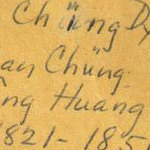 Chüng Dy
an Chüng
ng Huang
1821-185